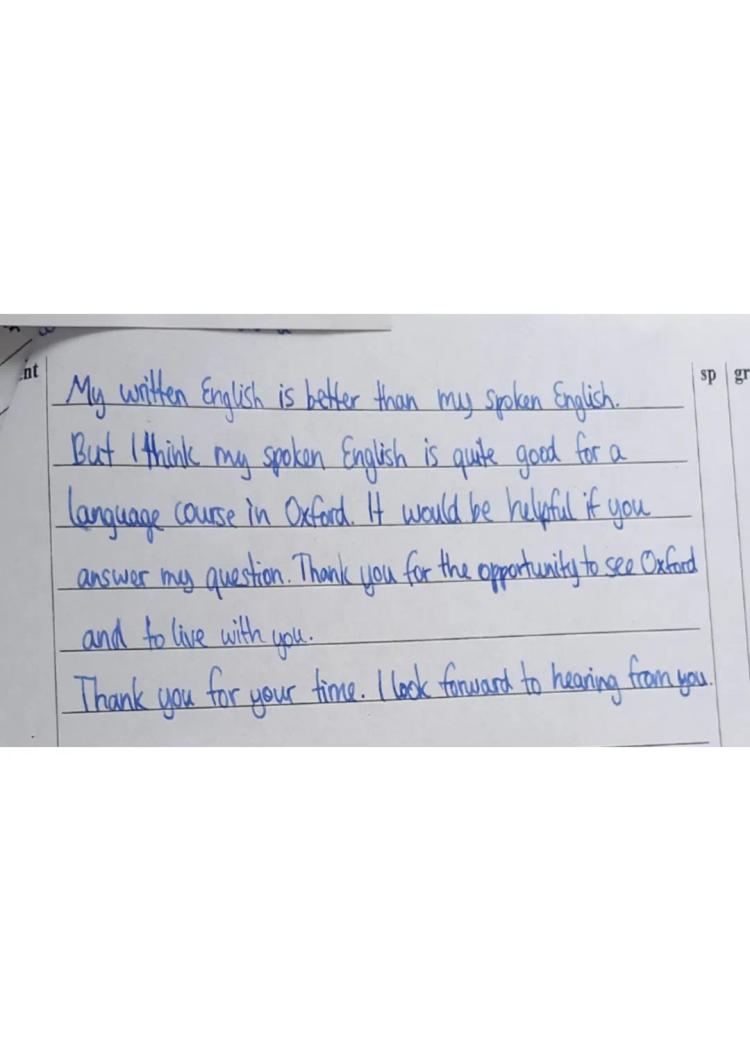 nt
sp gr
My written English is better than my spoken English.
But I think my spoken English is quite good for a
language course in Oxford. It would be helpful if you
answer my question. Thank you for the opportunity to see Oxford
and to live with you.
Thank you for your time. I look forward to hearing from you.